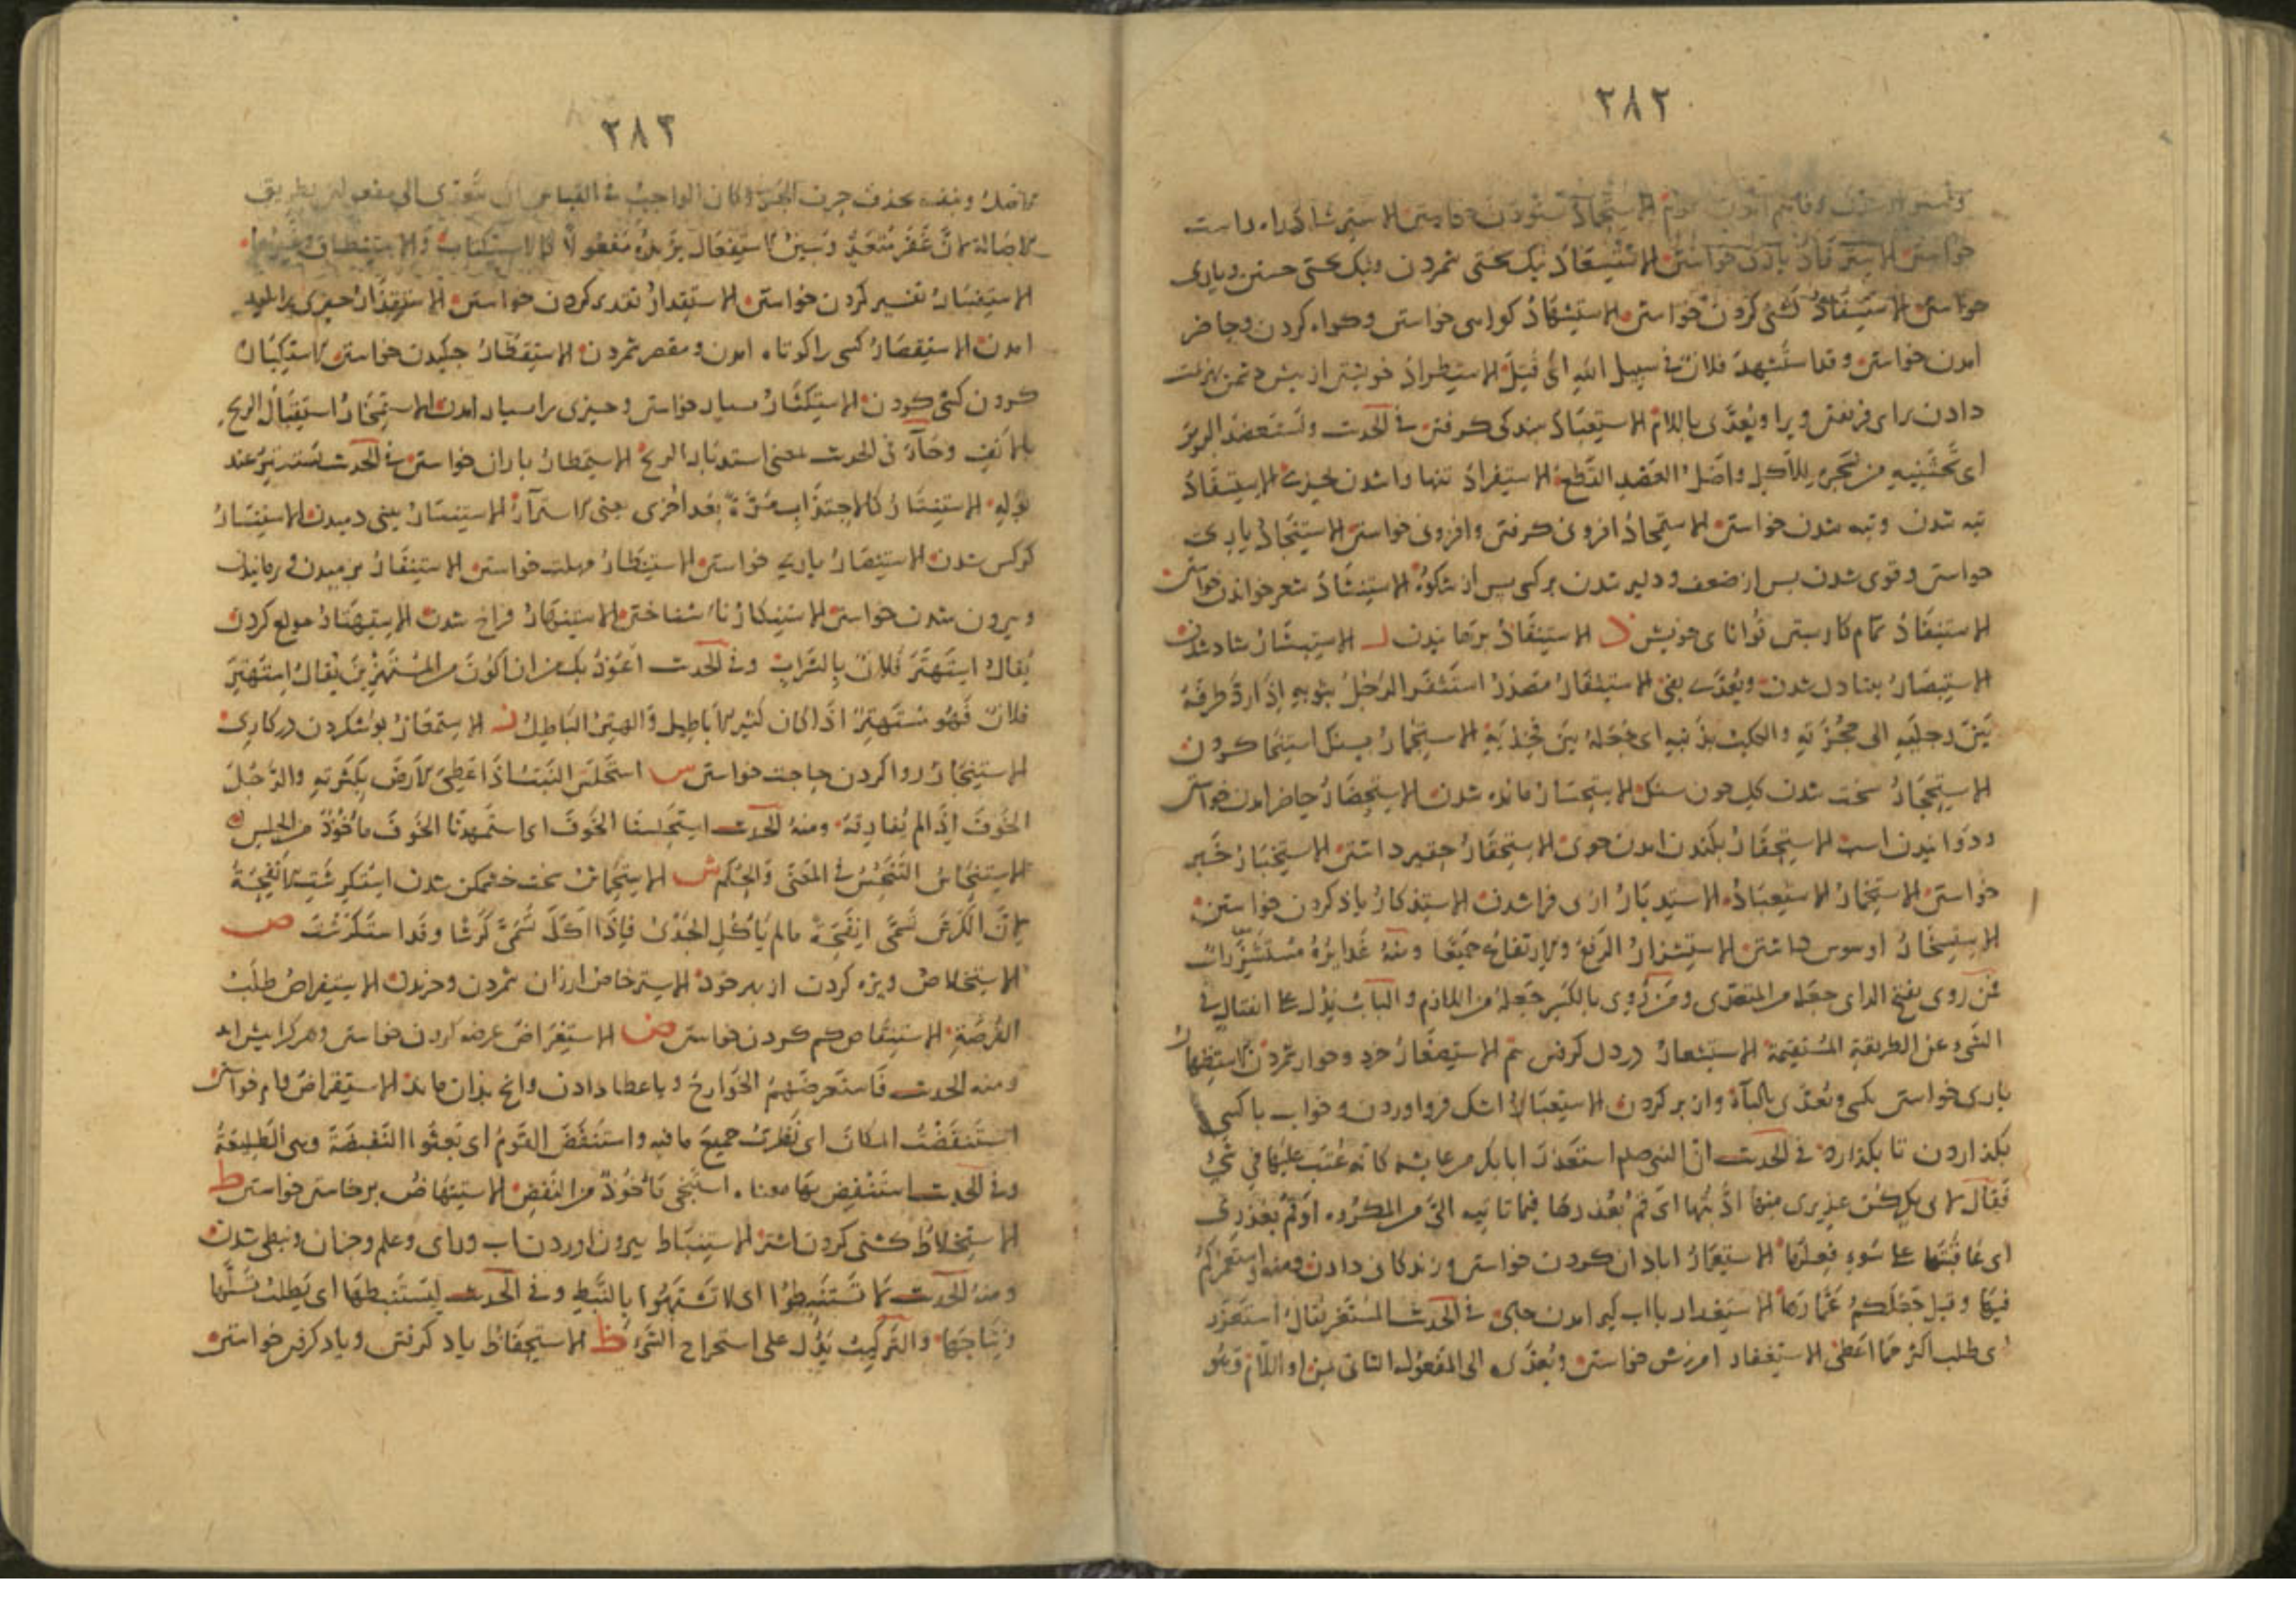 ٢٨٢
الاستحماد ستودن خواستن الاسترشاد راه راست
خواستن الاسترفاد یاری خواستن الاستسعاد نیک بختی شمردن ونیک بختی جستن ویاری
خواستن الاستسفاد کشنی کردن خواستن الاستشهاد کواهی خواستن وکواه کردن وحاضر
امدن خواستن وقد استشهد فلان فی سبیل الله ای قتل الاستطراد خویشتن از پیش دشمن بهزیمت
دادن برای فریفتن ویرا ویعدی باللام الاستعباد ببندکی کرفتن فی الحدیث ونستعضد البریر
ای نجتنیه من شجره للاکل واصل العضد القطع الاستفراد تنها واشدن بچیزی الاستفساد
تبه شدن وتبه شدن خواستن الاستمجاد افزونی کرفتن وافزونی خواستن الاستنجاد یاری
خواستن وقوی شدن پس از ضعف ودلیر شدن بر کسی پس از شکوه الاستنشاد شعر خواندن خواستن
الاستنفاد تمام کار بستن توانای خویش ذ الاستنقاذ برهانیدن ر الاستبشار شاد شدن
الاستبصار بینا دل شدن ویعدی بفی الاستثفار مصدر استثفر الرجل بثوبه اذا رد طرفه
بین رجلیه الی حجزته والکلب بذنبه ای جعله بین فخذیه الاستجمار بسنک استنجا کردن
الاستحجار سخت شدن کل چون سنک الاستحسار مانده شدن الاستحضار حاضر امدن خواستن
ودوانیدن اسب الاستحفار بکندن امدن جوی الاستحقار حقیر داشتن الاستخبار خبر
خواستن الاستخمار الاستعباد الاستدبار از پی فرا شدن الاستذکار یاد کردن خواستن
الاستسخار افسوس داشتن الاستشزار الرفع والارتفاع جمیعا ومنه غدایره مستشزرات
فمن روی بفتح الزای جعله من المتعدی ومن روی بالکسر جعله من اللازم والباب یدل علی انفتال فی
الشیء عن الطریقة المستقیمة الاستشعار در دل کرفتن بیم الاستصغار خرد وخوار شمردن الاستظهار
یاری خواستن بکسی ویعدی بالباء واز بر کردن الاستعبار اشک فرو اوردن وخواب با کسی
بکذاردن تا بکذارد فی الحدیث ان النبی صلعم استعذر ابا بکر من عایشه کانه عتب علیها فی شیء
فقال لابی بکر کن عذیری منها ان ادبتها ای قم بعذرها فیما تاتیه الی من المکروه او قم بعذری
ای عاقبتها علی سوء فعلها الاستعمار ابادان کردن خواستن وزندکانی دادن ومنه واستعمرکم
فیها وقیل جعلکم عمارها الاستغزار فی الحدیث المستغزر یقال استغزر
ای طلب اکثر مما اعطی الاستغفار امرزش خواستن ویعدی الی المفعول الثانی بمن او اللام وهو
٢٨٣
الاصل وبنفسه بحذف حرف الجر وکان الواجب فی القیاس ان یتعدی الی مفعولین بطریق
الاصالة لان غفر متعد وسین الاستفعال یزیده مفعولا کالاستکتاب والاستنطاق وغیرهما
الاستفسار تفسیر کردن خواستن الاستقدار تقدیر کردن خواستن الاستقذار چیزی پلید
امدن الاستقصار کسی را کوتاه امدن ومقصر شمردن الاستقطار چکیدن خواستن الاستکبار
کردن کشی کردن الاستکثار بسیار خواستن وچیزی را بسیار امدن الاستمخار استقبال الریح
بالانف وجاء فی الحدیث بمعنی استدبار الریح الاستمطار باران خواستن فی الحدیث عند
بوله الاستنثار کالاجتذاب مرة بعد اخری یعنی الاستبراء الاستنثار ببینی دمیدن الاستنسار
کرکس شدن الاستنصار یاری خواستن الاستنظار مهلت خواستن الاستنفار برمیدن ورمانیدن
وبیرون شدن خواستن الاستنکار ناشناختن الاستنهار فراخ شدن الاستهتار مولع کردن
یقال استهتر فلان بالشراب وفی الحدیث اعوذ بک من ان اکون من المستهترین یقال استهتر
فلان فهو مستهتر اذا کان کثیر الاباطیل والهتر الباطل ز
الاستنجاز روا کردن حاجت خواستن س استحلس النبت اذا غطی الارض بکثرته والرجل
الخوف اذا لم یفارقه ومنه الحدیث استحلسنا الخوف ای استمهدنا الخوف ماخوذ من الحلس
الاستنجاس التنجس فی المعنی والحکم ش استکرشت الانفحة
لان الکرش تسمی انفحة ما لم یاکل الجدی فاذا اکل تسمی کرشا وقد استکرشت ص
الاستخلاص ویژه کردن از بهر خود الاسترخاص ارزان شمردن وخریدن الاستفراص طلب
الفرصة الاستنقاص کم کردن خواستن ض الاستعراض عرضه کردن خواستن وهر کرا پیش اید
ومنه الحدیث فاستعرضهم الخوارج الاستقراض وام خواستن
استنفضت المکان ای نظرت جمیع ما فیه واستنفض القوم ای بعثوا النفیضة وهی الطلیعة
وفی الحدیث استنفض بها معناه استنجی ماخوذ من النفض الاستنهاض برخاستن خواستن ط
الاستخلاط کشنی کردن اشتر الاستنباط بیرون اوردن اب ورای وعلم وجز ان ونبطی شدن
ومنه الحدیث لا تستنبطوا ای لا تشبهوا بالنبط وفی الحدیث لیستنبطها ای یطلب نسلها
ونتاجها والترکیب یدل علی استخراج الشیء ظ الاستحفاظ یاد کرفتن ویاد کرفتن خواستن